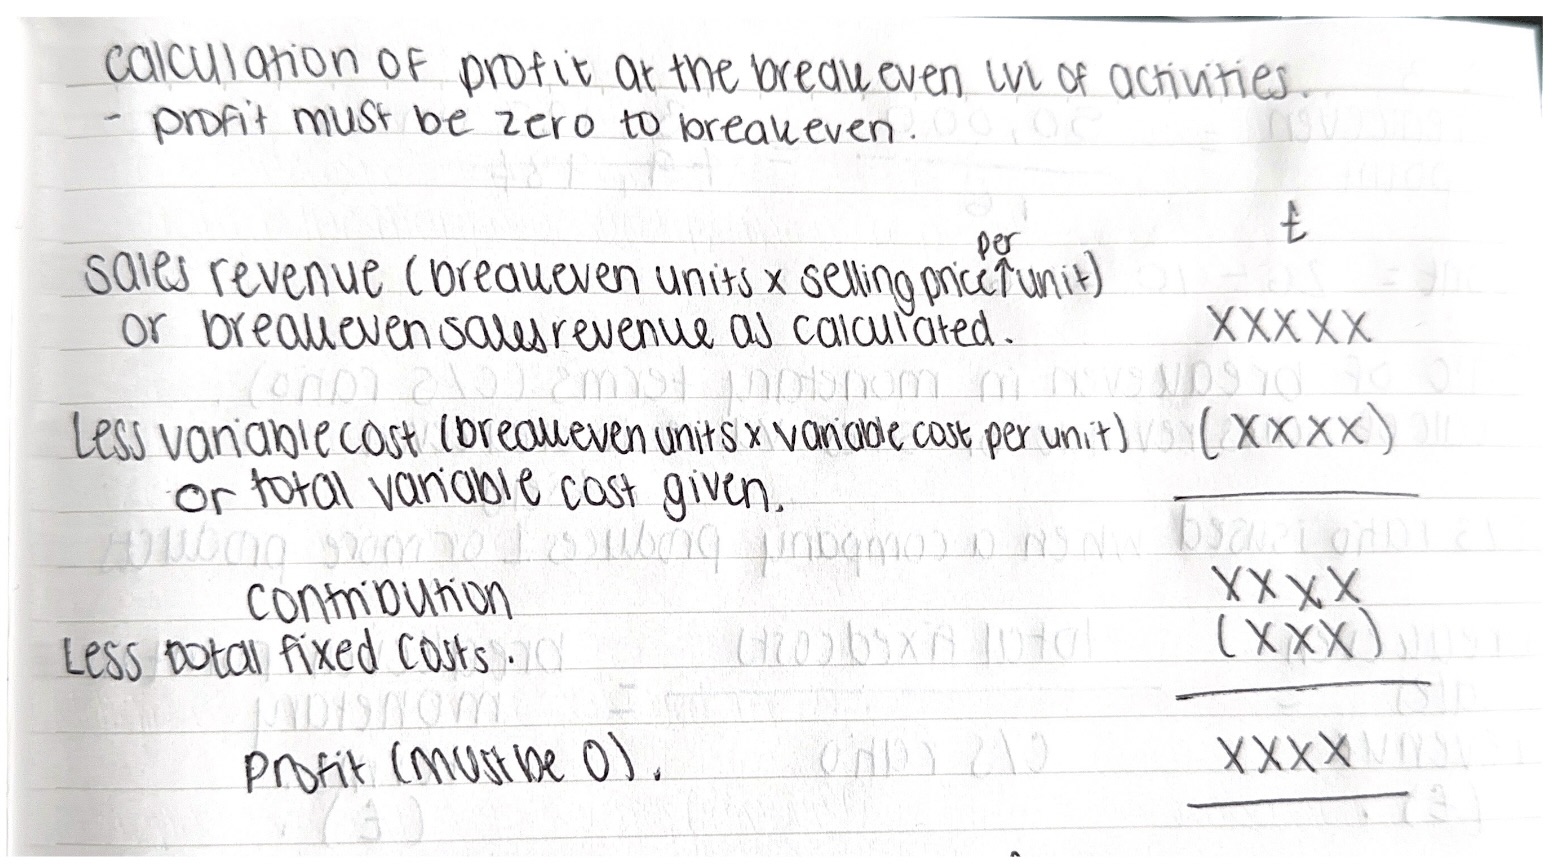 calculation of profit at the breakeven lvl of activities.
- profit must be zero to breakeven.
£
sales revenue (breakeven units x selling price per unit)
or breakeven sales revenue as calculated. XXXXX
Less variable cost (breakeven units x variable cost per unit) (XXXX)
or total variable cost given.
contribution XXXX
Less total fixed costs. (XXX)
Profit (must be 0). XXXX